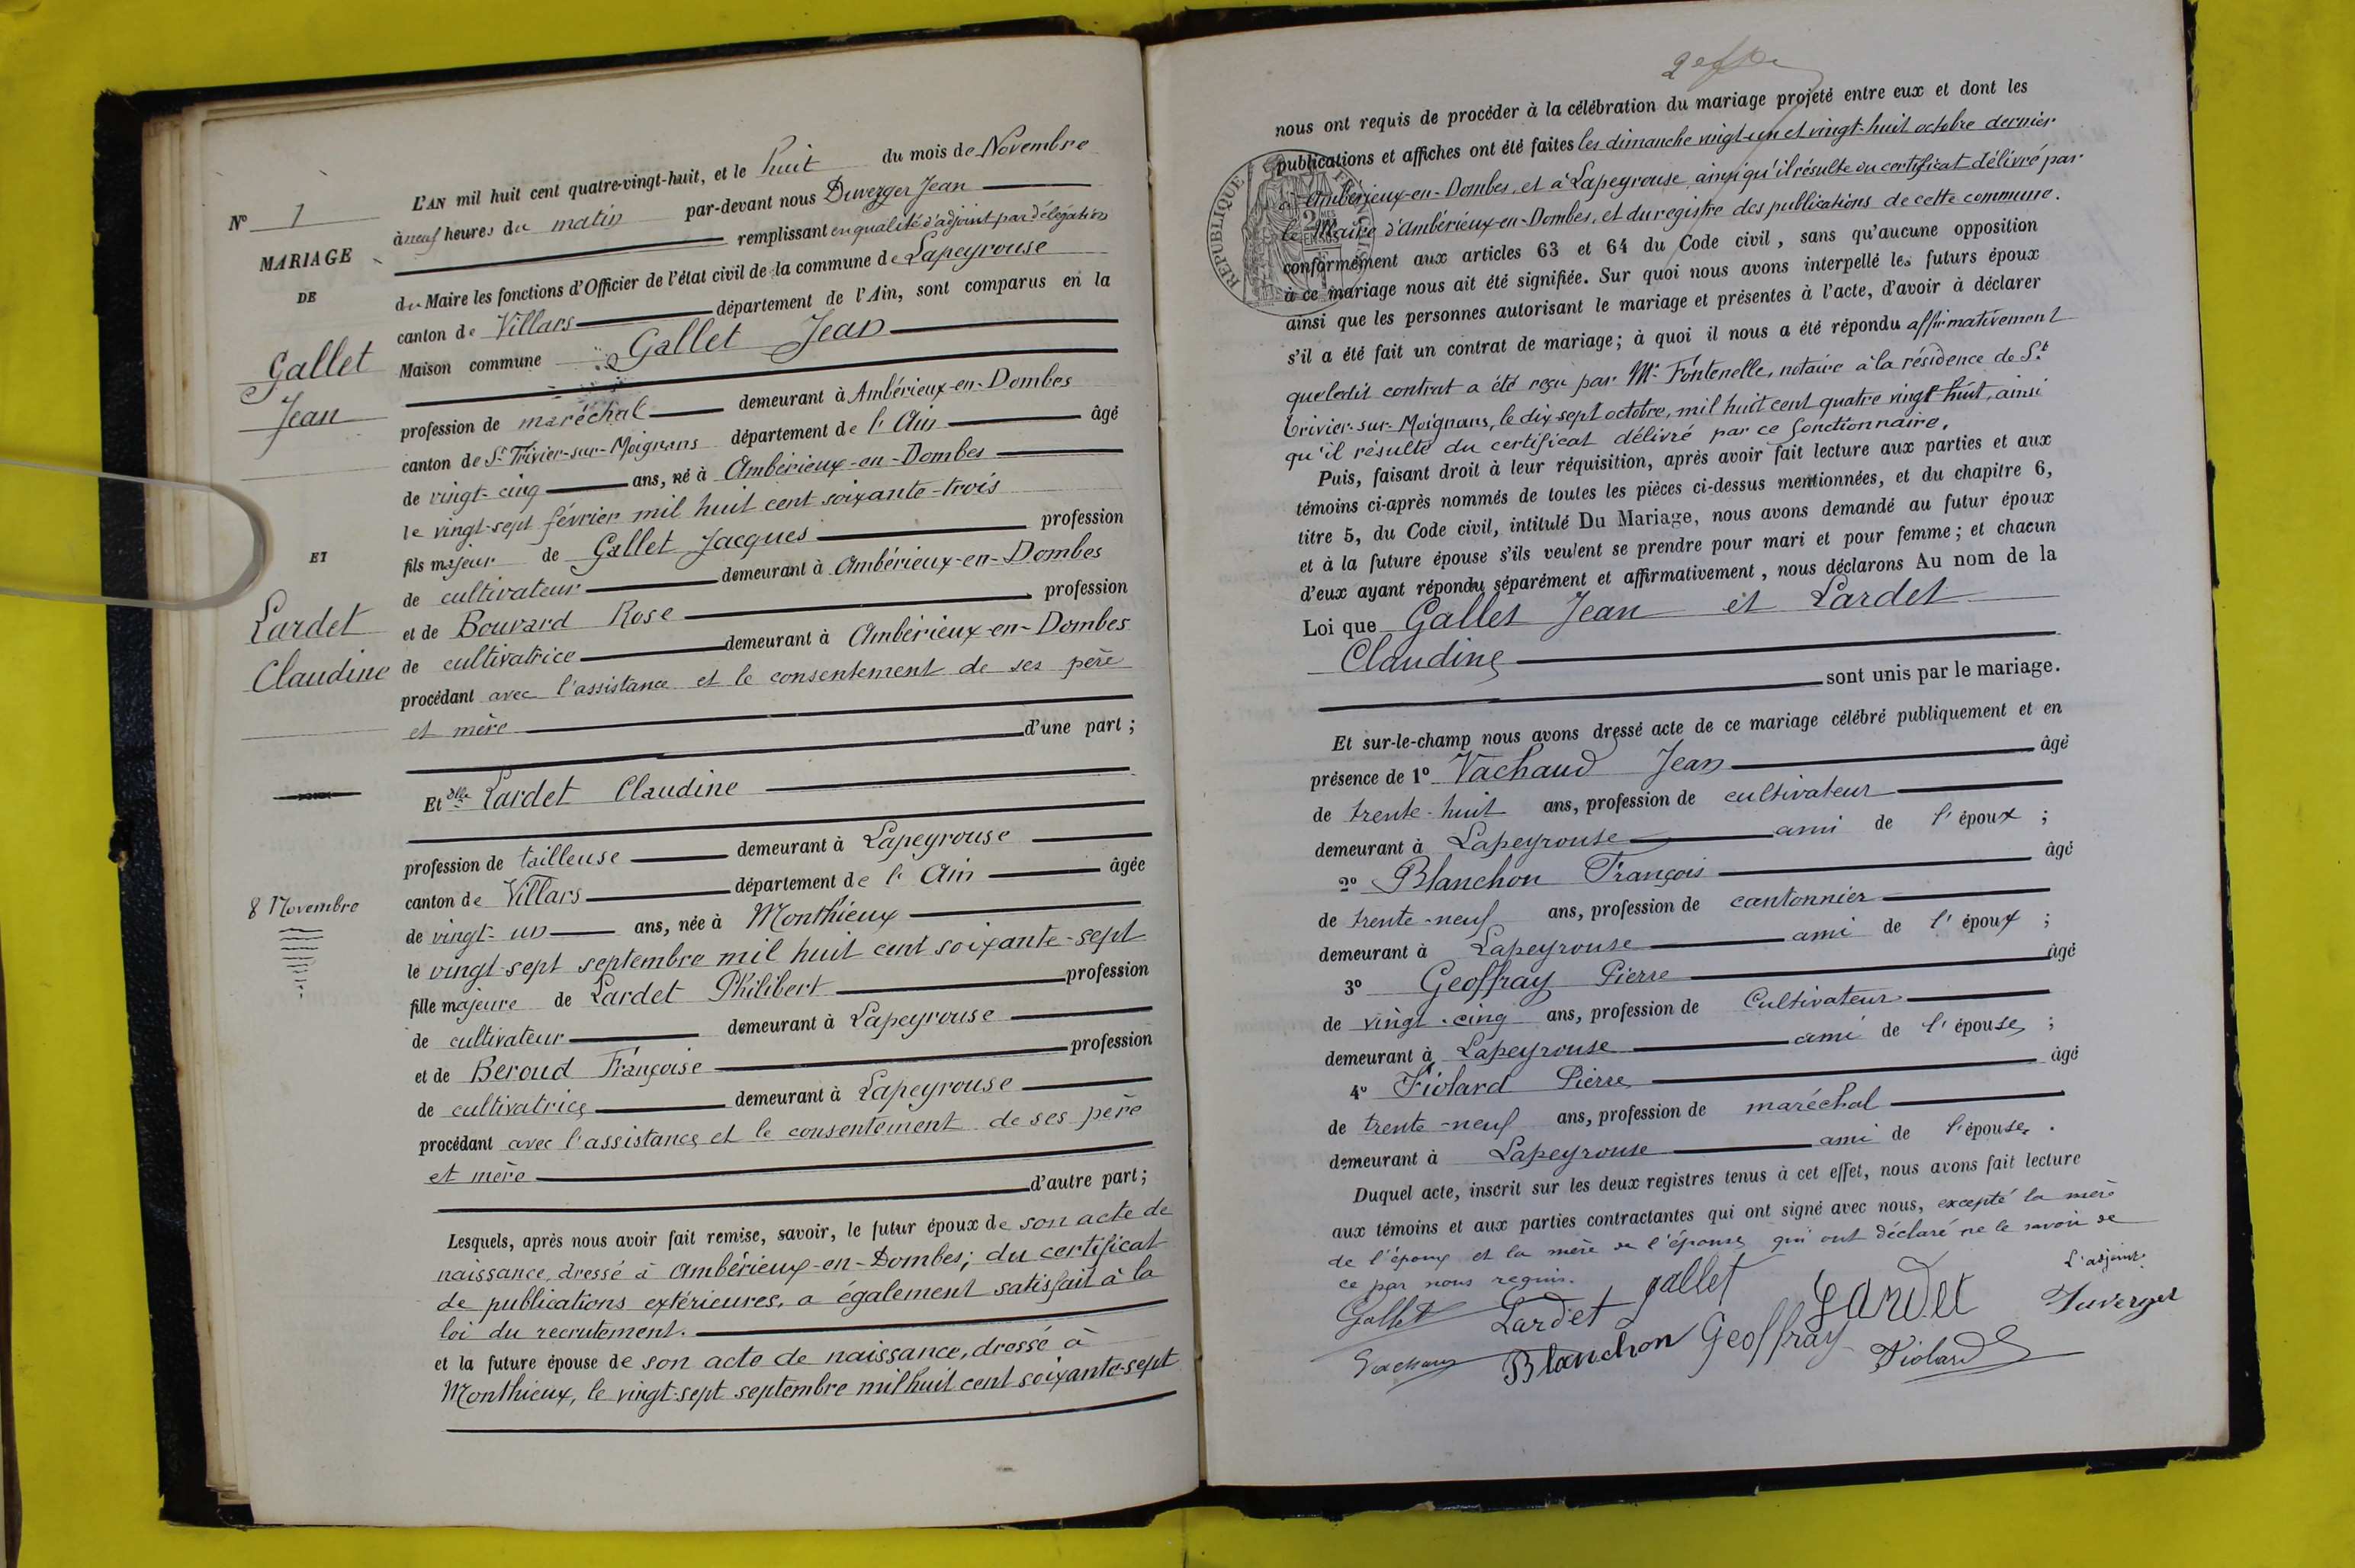 L'AN mil huit cent quatre-vingt-huit, et le huit du mois de Novembre
à neuf heures du matin par-devant nous Duverger Jean
remplissant en qualité d'adjoint par délégation
du Maire les fonctions d'Officier de l'état civil de la commune de Lapeyrouse
canton de Villars département de l'Ain, sont comparus en la
Maison commune Gallet Jean
profession de maréchal demeurant à Ambérieux-en-Dombes
canton de St Trivier-sur-Moignans département de l'Ain âgé
de vingt-cinq ans, né à Ambérieux-en-Dombes
le vingt-sept février mil huit cent soixante-trois
fils majeur de Gallet Jacques profession
de cultivateur demeurant à Ambérieux-en-Dombes
et de Bouvard Rose profession
de cultivatrice demeurant à Ambérieux-en-Dombes
procédant avec l'assistance et le consentement de ses père
et mère d'une part ;
Et dlle Lardet Claudine
profession de tailleuse demeurant à Lapeyrouse
canton de Villars département de l'Ain âgée
de vingt-un ans, née à Monthieux
le vingt-sept septembre mil huit cent soixante-sept
fille majeure de Lardet Philibert profession
de cultivateur demeurant à Lapeyrouse
et de Beroud Françoise profession
de cultivatrice demeurant à Lapeyrouse
procédant avec l'assistance et le consentement de ses père
et mère d'autre part ;
Lesquels, après nous avoir fait remise, savoir, le futur époux de son acte de
naissance, dressé à Ambérieux-en-Dombes; du certificat
de publications extérieures, a également satisfait à la
loi du recrutement.
et la future épouse de son acte de naissance, dressé à
Monthieux, le vingt-sept septembre mil huit cent soixante-sept
N° 1
MARIAGE
DE
Gallet
Jean
ET
Lardet
Claudine
8 Novembre
nous ont requis de procéder à la célébration du mariage projeté entre eux et dont les
publications et affiches ont été faites les dimanche vingt-un et vingt-huit octobre dernier
à Ambérieux-en-Dombes, et à Lapeyrouse ainsi qu'il résulte du certificat délivré par
le Maire d'Ambérieux-en-Dombes, et du registre des publications de cette commune.
conformément aux articles 63 et 64 du Code civil, sans qu'aucune opposition
à ce mariage nous ait été signifiée. Sur quoi nous avons interpellé les futurs époux
ainsi que les personnes autorisant le mariage et présentes à l'acte, d'avoir à déclarer
s'il a été fait un contrat de mariage; à quoi il nous a été répondu affirmativement
que ledit contrat a été reçu par Mr Fontenelle, notaire à la résidence de St
Trivier-sur-Moignans, le dix sept octobre, mil huit cent quatre vingt-huit, ainsi
qu'il résulte du certificat délivré par ce fonctionnaire.
Puis, faisant droit à leur réquisition, après avoir fait lecture aux parties et aux
témoins ci-après nommés de toutes les pièces ci-dessus mentionnées, et du chapitre 6,
titre 5, du Code civil, intitulé Du Mariage, nous avons demandé au futur époux
et à la future épouse s'ils veulent se prendre pour mari et pour femme ; et chacun
d'eux ayant répondu séparément et affirmativement, nous déclarons Au nom de la
Loi que Gallet Jean et Lardet
Claudine
sont unis par le mariage.
Et sur-le-champ nous avons dressé acte de ce mariage célébré publiquement et en
présence de 1° Vachaud Jean âgé
de trente-huit ans, profession de cultivateur
demeurant à Lapeyrouse ami de l'époux ;
2° Blanchon François âgé
de trente-neuf ans, profession de cantonnier
demeurant à Lapeyrouse ami de l'époux ;
3° Geoffray Pierre âgé
de vingt-cinq ans, profession de Cultivateur
demeurant à Lapeyrouse ami de l'épouse ;
4° Fiolard Pierre âgé
de trente-neuf ans, profession de maréchal
demeurant à Lapeyrouse ami de l'épouse.
Duquel acte, inscrit sur les deux registres tenus à cet effet, nous avons fait lecture
aux témoins et aux parties contractantes qui ont signé avec nous, excepté la mère
de l'époux et la mère de l'épouse qui ont déclaré ne le savoir de
ce par nous requis.
L'adjoint.
Gallet Lardet gallet Lardet Duverger
Vachaud Blanchon Geoffray Fiolard